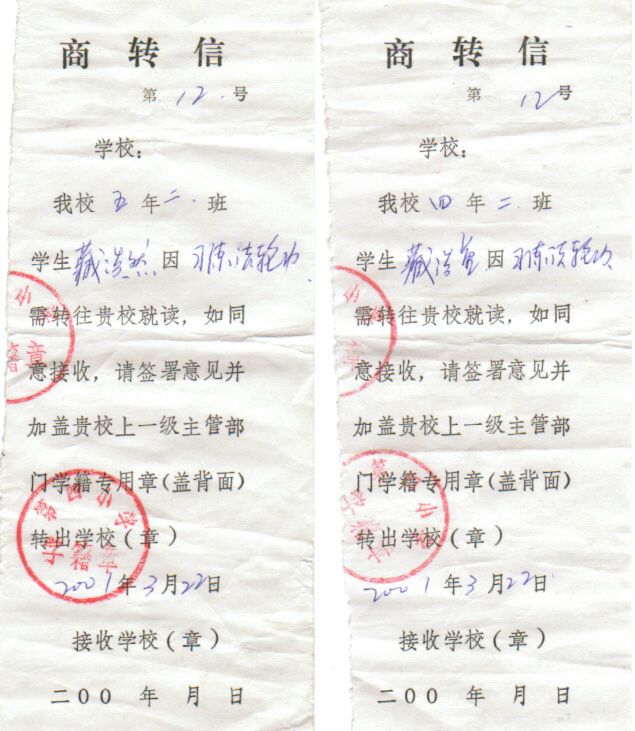 商转信
第 12 号
学校:
我校五年二班
学生藏浩然因习练法轮功
需转往贵校就读，如同
意接收，请签署意见并
加盖贵校上一级主管部
门学籍专用章(盖背面)
转出学校(章)
2001年3月22日
接收学校(章)
二00 年 月 日
商转信
第 12号
学校:
我校四年二班
学生藏浩因习练法轮功
需转往贵校就读，如同
意接收，请签署意见并
加盖贵校上一级主管部
门学籍专用章(盖背面)
转出学校(章)
2001年3月22日
接收学校(章)
二00 年 月 日